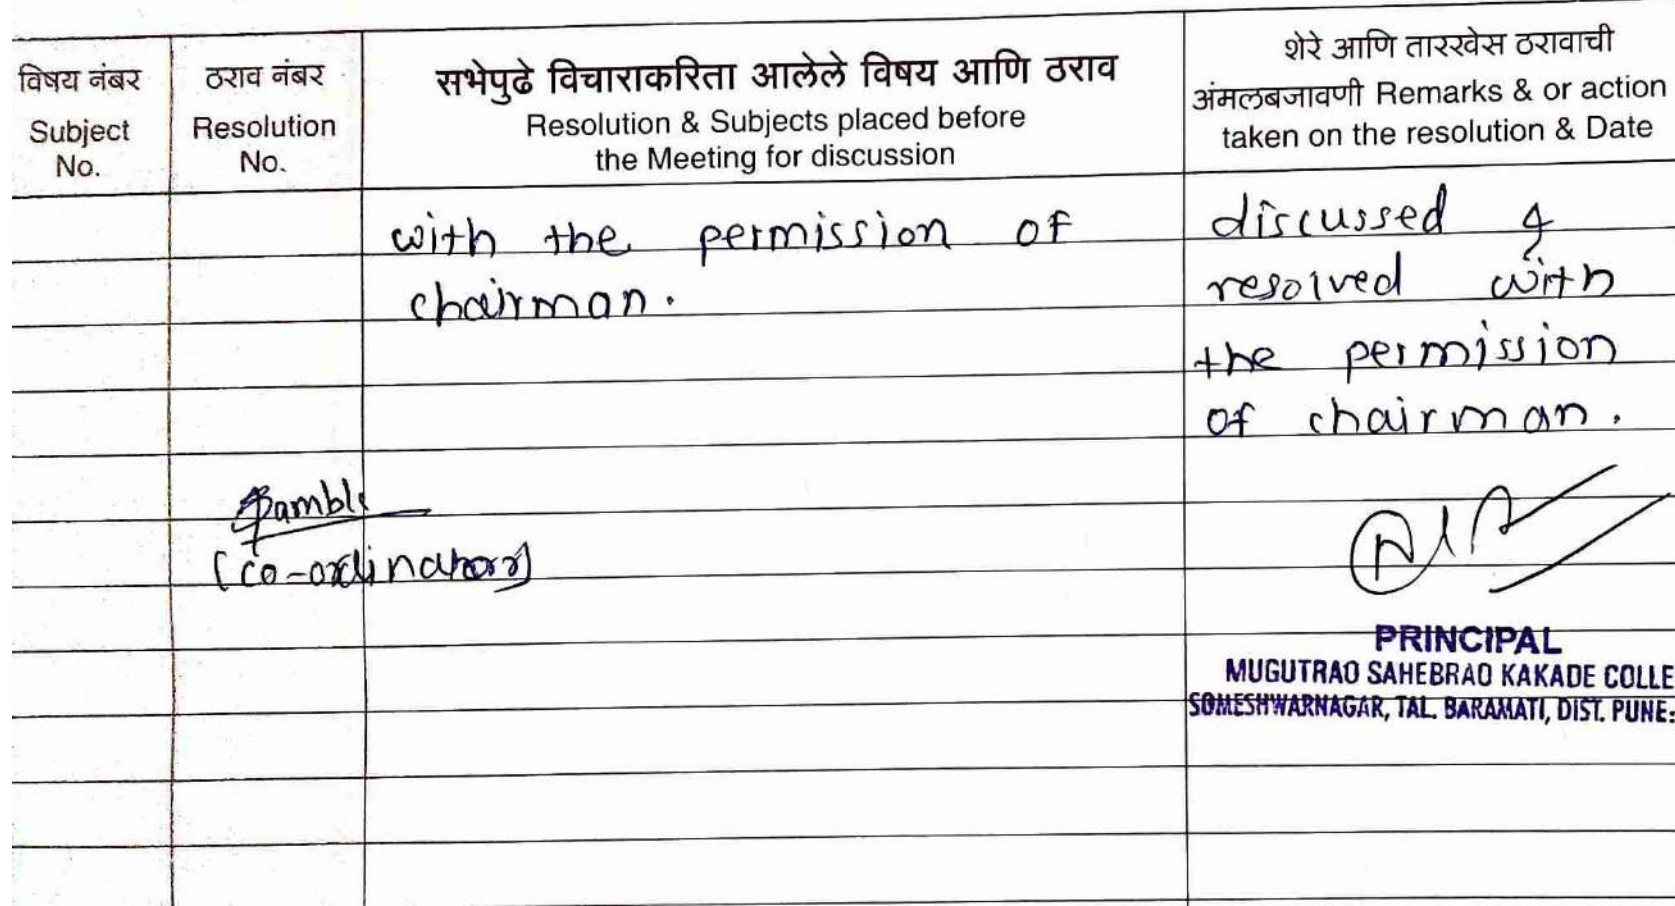 विषय नंबर
Subject
No.
ठराव नंबर
Resolution
No.
सभेपुढे विचाराकरिता आलेले विषय आणि ठराव
Resolution & Subjects placed before
the Meeting for discussion
शेरे आणि तारखेस ठरावाची
अंमलबजावणी Remarks & or action
taken on the resolution & Date
with the permission of
chairman.
discussed &
resolved with
the permission
of chairman.
(co-ordinator)
PRINCIPAL
MUGUTRAO SAHEBRAO KAKADE COLLE
SOMESHWARNAGAR, TAL. BARAMATI, DIST. PUNE